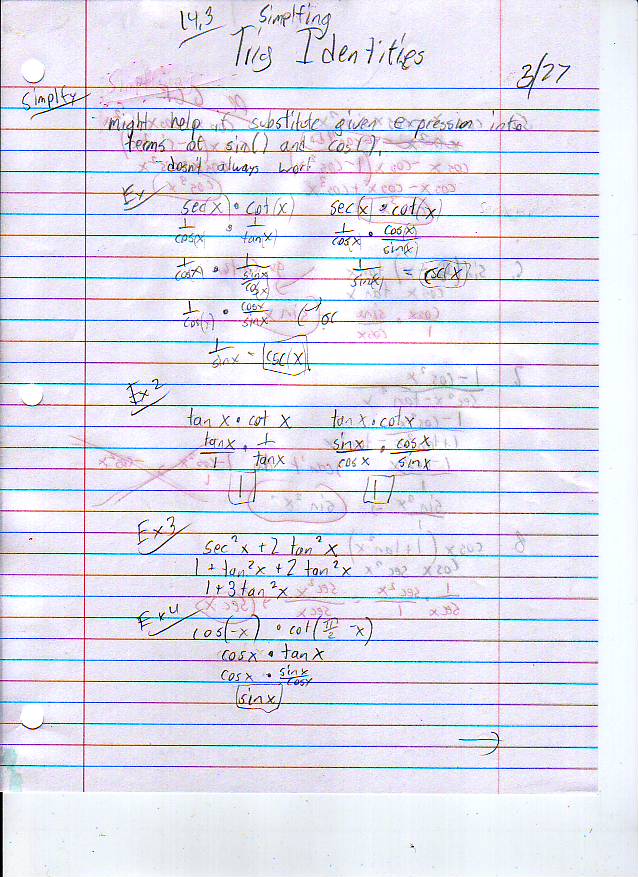 14.3 Simplfing
Trig Identities
3/27
Simplfy
might help if substitute given expression into
terms of sin() and cos().
- doesn't always work
Ex
sec(x) • cot(x) sec(x) • cot(x)
1/cos(x) • 1/tan(x) 1/cosx • cos(x)/sin(x)
1/cos(x) • 1/(sinx/cos(x)) 1/sin(x) = csc(x)
1/cos(x) • cosx/sinx
1/sinx = csc(x)
Ex2
tan x • cot x tan x • cotx
tanx/1 • 1/tanx sinx/cosx • cosx/sinx
1 1
Ex3
sec²x + 2 tan²x
1 + tan²x + 2 tan²x
1 + 3 tan²x
Ex4
cos(-x) • cot(π/2 - x)
cosx • tan x
cosx • sinx/cosx
sinx
→